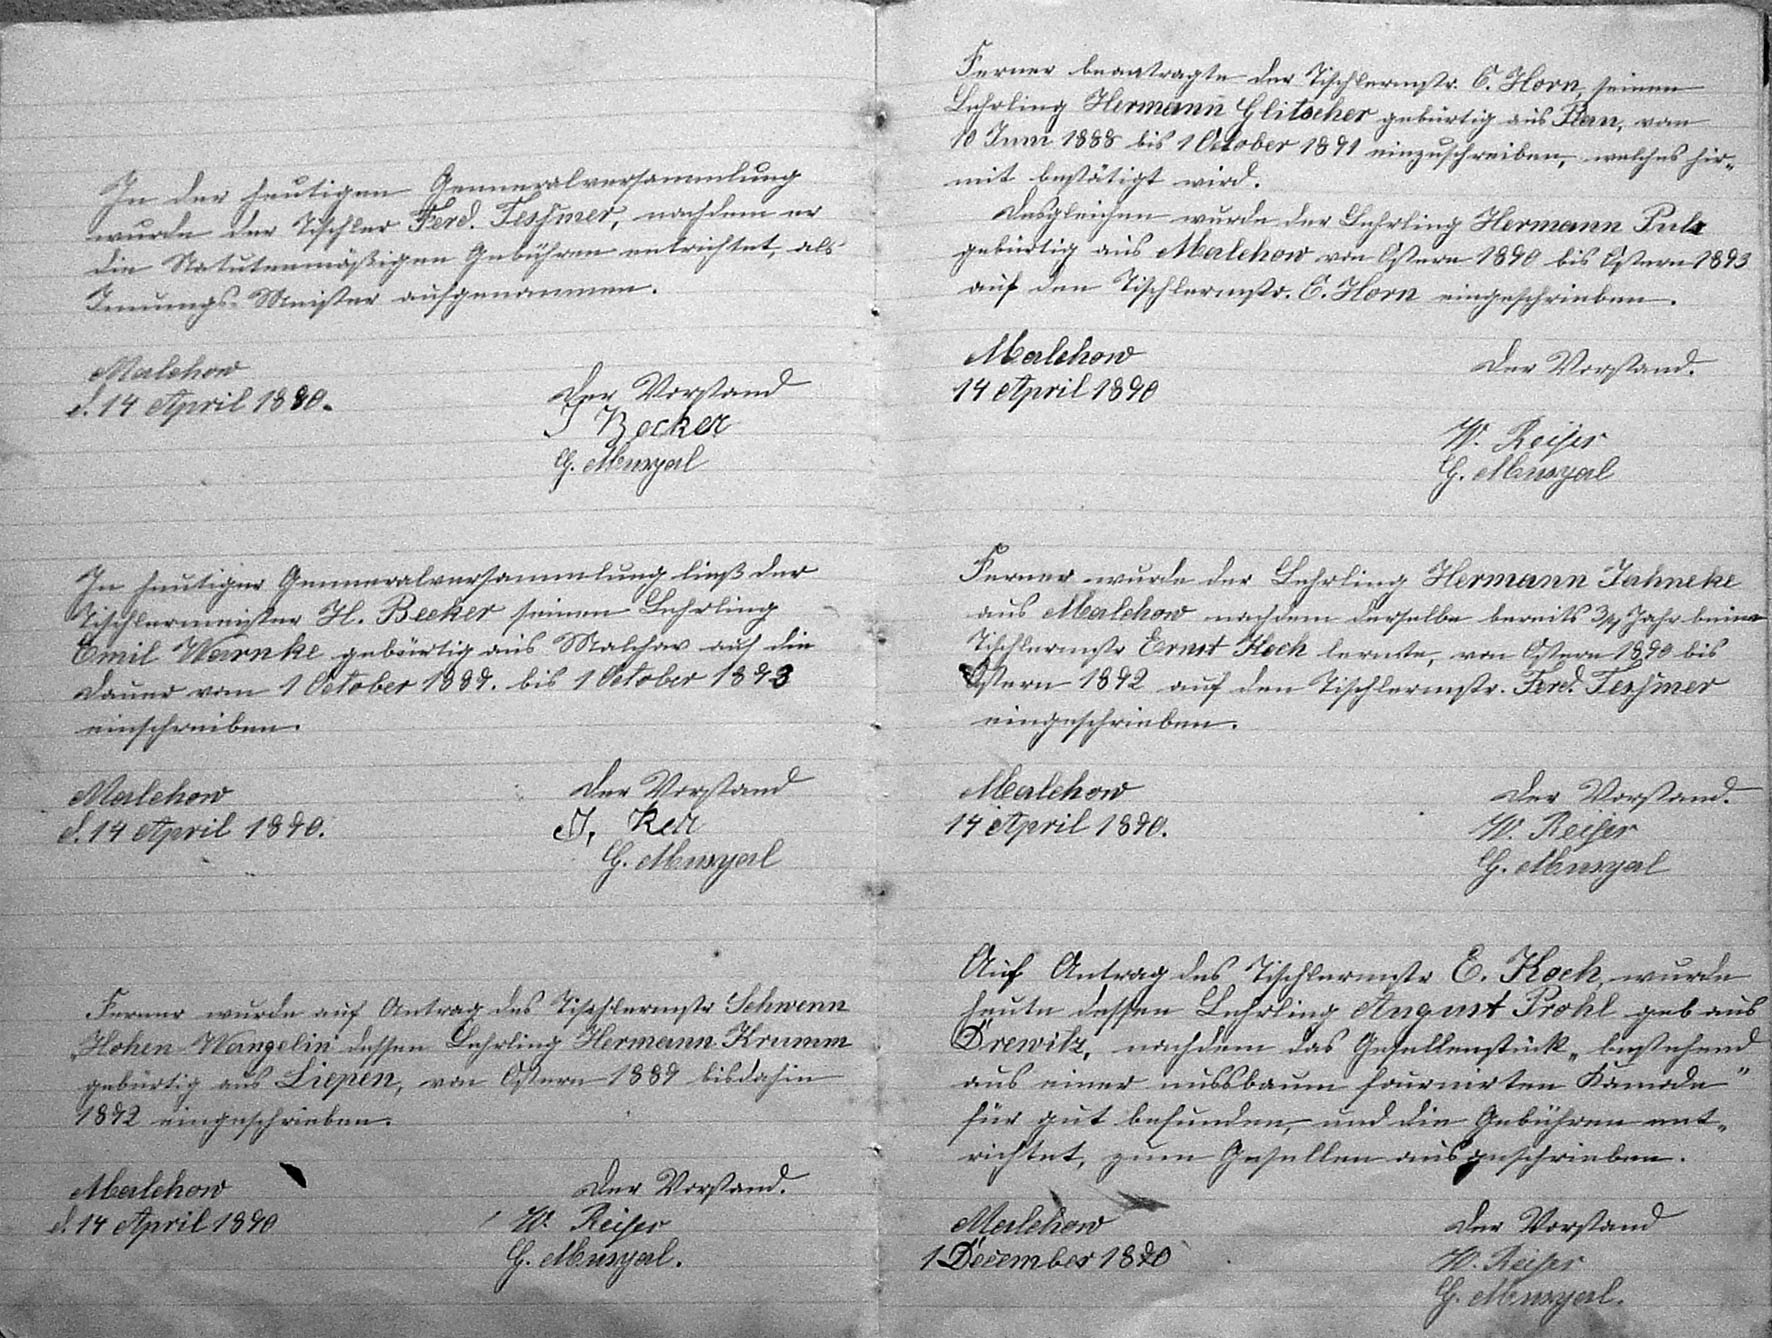 In der heutigen Genneralversammlung
wurde der Tischler Ferd. Teßmer, nachdem er
die Statutenmäßigen Gebühren entrichtet, als
Innungs-Meister aufgenommen.
Malchow
d. 14 April 1890.
Der Vorstand
J Becker
G.
In heutiger Genneralversammlung ließ der
Tischlermeister H. Becker seinen Lehrling
Emil Warnke gebürtig aus Malchow auf die
Dauer vom 1 October 1889. bis 1 October 1893
einschreiben.
Malchow
d. 14 April 1890.
Der Vorstand
J. ker
G.
Ferner wurde auf Antrag des Tischlermstr Schwenn
Hohen-Wangelin dessen Lehrling Hermann Krumm
gebürtig aus Liepen, von Ostern 1889 bis dahin
1892 eingeschrieben.
Malchow
d. 14 April 1890
Der Vorstand.
W. Reißer
G.
Ferner beantragte der Tischlermstr. E. Horn, seinen
Lehrling Hermann Glitscher gebürtig aus Plan, vom
10 Juni 1888 bis 1 October 1891 einzuschreiben, welches hier-
mit bestätigt wird.
Desgleichen wurde der Lehrling Hermann
gebürtig aus Malchow von Ostern 1890 bis Ostern 1893
auf den Tischlermstr. E. Horn eingeschrieben.
Malchow
14 April 1890
Der Vorstand.
W. Reißer
G.
Ferner wurde der Lehrling Hermann Jahneke
aus Malchow nachdem derselbe bereits 3/4 Jahr beim
Tischlermstr Ernst Koch lernte, von Ostern 1890 bis
Ostern 1892 auf den Tischlermstr. Ferd. Teßmer
eingeschrieben.
Malchow
14 April 1890.
Der Vorstand.
W. Reißer
G.
Auf Antrag des Tischlermstr E. Koch, wurde
heute dessen Lehrling August Prohl geb aus
Drewitz, nachdem das Gesellenstück „bestehend
aus einer nussbaum fournirten Kamode"
für gut befunden, und die Gebühren ent-
richtet, zum Gesellen ausgeschrieben.
Malchow
1 December 1890
Der Vorstand
W. Reißer
G.